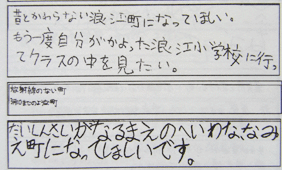 昔とかわらない浪江町になってほしい。
もう一度自分がかよった浪江小学校に行っ
てクラスの中を見たい。
放射線のない町
だいしんさいがなるまえのへいわななみ
え町になってほしいです。